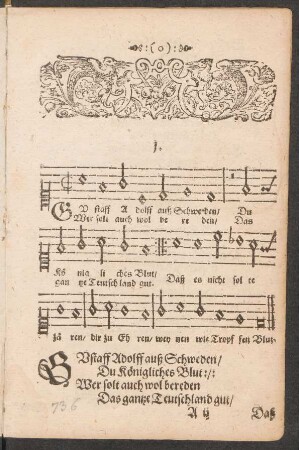 :(o):
j.
GV staff A dolff auß Schweden/ Du
Wer solt auch wol be re den/ Das
Kö nig li ches Blut/
gan tze Teutsch land gut. Daß es nicht sol te
zä ren/ dir zu Eh ren/ wey nen wie Tropf fen Blut.
GUstaff Adolff auß Schweden/
Du Königliches Blut:/:
Wer solt auch wol bereden
Das gantze Teutschland gut/
736
A ij Daß